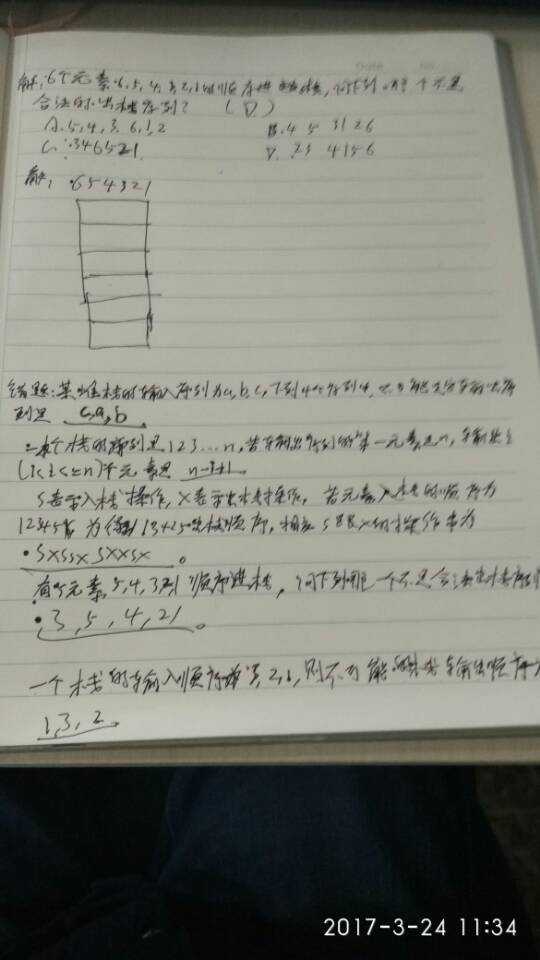 解:6个元素6,5,4,3,2,1的顺序进栈,问下列哪个不是
合法的出栈序列? (D)
A.5,4,3,6,1,2 B.4 5 3 1 2 6
C.346521 D. 23 4156
解: 654321
错题:某堆栈的输入序列为a,b,c,下列4个序列中,不可能是它的输出序
列是 c,a,b
一个栈的序列是123…n,若输出序列的第一元素是n,输出第i
(1<=i<=n)个元素是 n-i+1
S表示入栈操作,X表示出栈操作,若元素入栈的顺序为
为得到13425出栈顺序,相应S和X的操作串为
SXSSXSXXSX。
有5个元素5,4,3,2,1顺序进栈,问下列哪一个不是合法出栈序列
3,5,4,21。
一个栈的输入顺序 3,2,1,则不可能 输出顺序
1,3,2
2017-3-24 11:34